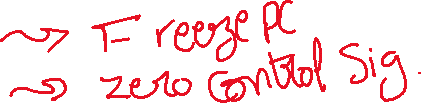 ~> Freeze PC
~> zero control Sig.